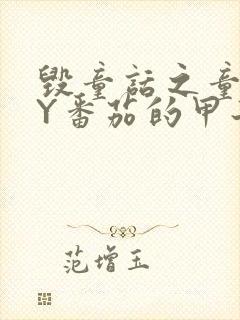 毁童话之童
Y番茄的甲
范增玉